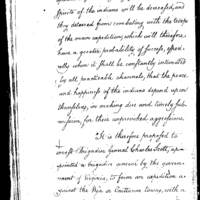 spirits of the indians will be decreased, and
they deterred from combating with the troops
of the main expedition, which will therefore
have a greater probability of success, espe-
cially when it shall be constantly intimated
by all practicable channels, that the peace
and happiness of the indians depend upon
themselves, in making due and timely sub-
mission, for their unprovoked aggressions.
It is therefore proposed to
Brigadier General Charles Scott, ap-
pointed a brigadier general by the govern-
ment of Virginia, to form an expedition a-
gainst the Wea or Ouittanon towns, with a